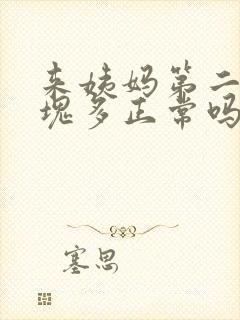 来姨妈第二
块多正常吗
塞思